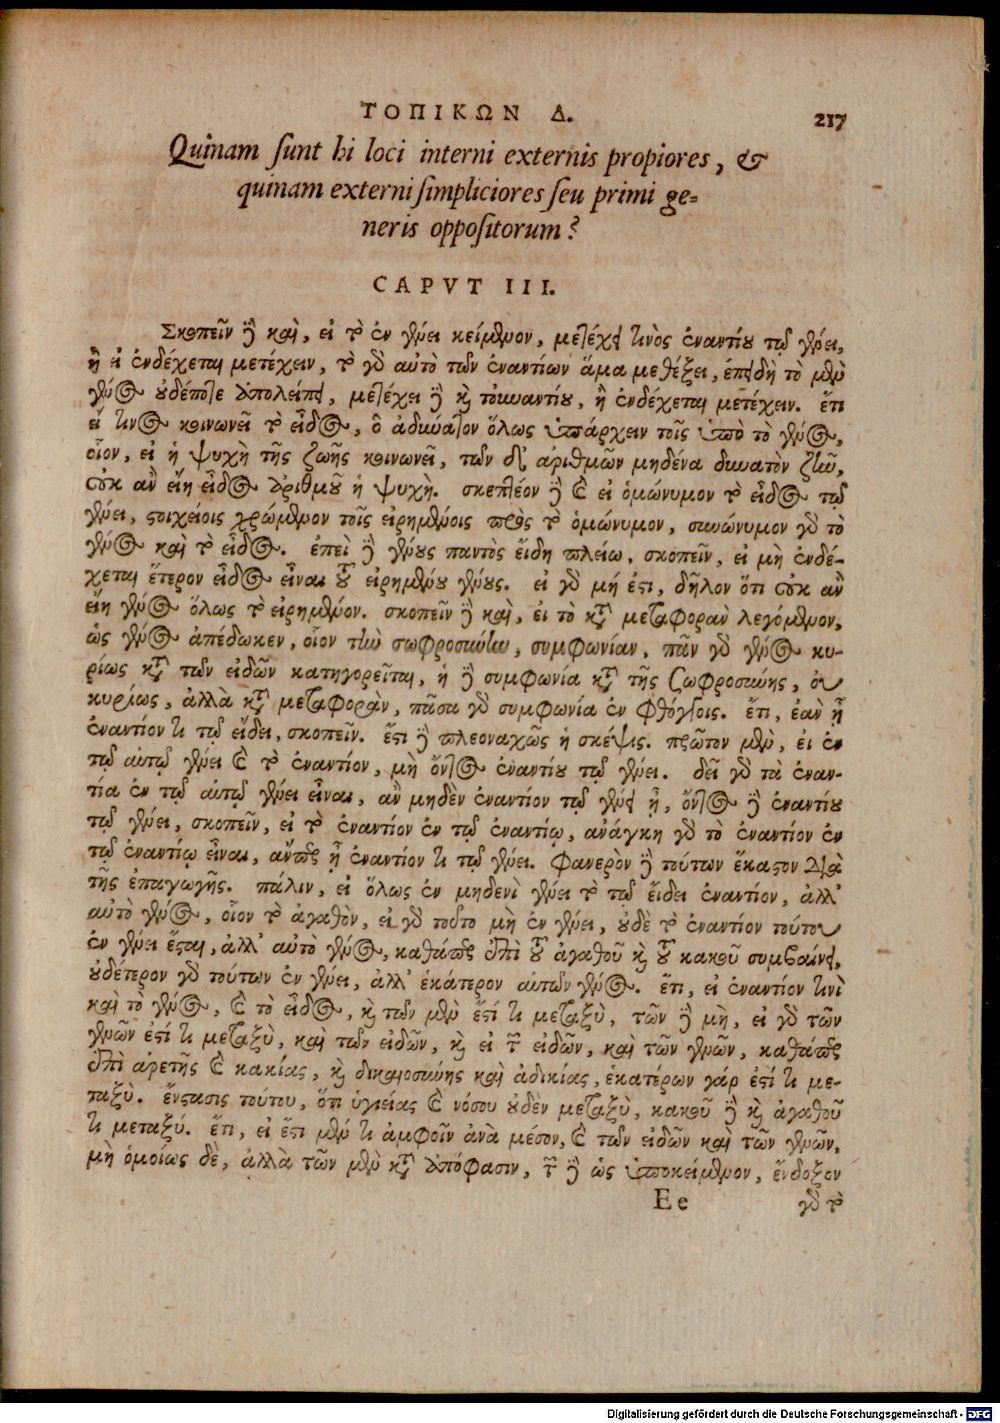 ΤΟΠΙΚΩΝ Δ. 217
Quinam sunt hi loci interni externis propiores, &
quinam externi simpliciores seu primi ge-
neris oppositorum?
CAPVT III.
Σκοπεῖν δὲ καὶ, εἰ τὸ ἐν γένει κείμενον, μετέχει τινὸς ἐναντίου τῷ γένει,
ἢ εἰ ἐνδέχεται μετέχειν, τὸ γὰρ αὐτὸ τῶν ἐναντίων ἅμα μεθέξει, ἐπειδὴ τὸ μὲν
γένος οὐδέποτε ἀπολείπει, μετέχει δὲ καὶ τοὐναντίου, ἢ ἐνδέχεται μετέχειν. ἔτι
εἴ τινος κοινωνεῖ τὸ εἶδος, ὃ ἀδύνατον ὅλως ὑπάρχειν τοῖς ὑπὸ τὸ γένος,
οἷον, εἰ ἡ ψυχὴ τῆς ζωῆς κοινωνεῖ, τῶν δ' ἀριθμῶν μηδένα δυνατὸν ζῆν,
οὐκ ἂν εἴη εἶδος ἀριθμοῦ ἡ ψυχὴ. σκεπτέον δὲ καὶ εἰ ὁμώνυμον τὸ εἶδος τῷ
γένει, στοιχείοις χρώμενον τοῖς εἰρημένοις πρὸς τὸ ὁμώνυμον, συνώνυμον γὰρ τὸ
γένος καὶ τὸ εἶδος. ἐπεὶ δὲ γένους παντὸς εἴδη πλείω, σκοπεῖν, εἰ μὴ ἐνδέ-
χεται ἕτερον εἶδος εἶναι τοῦ εἰρημένου γένους. εἰ γὰρ μή ἐστι, δῆλον ὅτι οὐκ ἂν
εἴη γένος ὅλως τὸ εἰρημένον. σκοπεῖν δὲ καὶ, εἰ τὸ κατὰ μεταφορὰν λεγόμενον,
ὡς γένος ἀπέδωκεν, οἷον τὴν σωφροσύνην, συμφωνίαν, πᾶν γὰρ γένος κυ-
ρίως κατὰ τῶν εἰδῶν κατηγορεῖται, ἡ δὲ συμφωνία κατὰ τῆς σωφροσύνης, οὐ
κυρίως, ἀλλὰ κατὰ μεταφορὰν, πᾶσα γὰρ συμφωνία ἐν φθόγγοις. ἔτι, ἐὰν ᾖ
ἐναντίον τι τῷ εἴδει, σκοπεῖν. ἔστι δὲ πλεοναχῶς ἡ σκέψις. πρῶτον μὲν, εἰ ἐν
τῷ αὐτῷ γένει καὶ τὸ ἐναντίον, μὴ ὄντος ἐναντίου τῷ γένει. δεῖ γὰρ τὰ ἐναν-
τία ἐν τῷ αὐτῷ γένει εἶναι, ἂν μηδὲν ἐναντίον τῷ γένει ᾖ, ὄντος δὲ ἐναντίου
τῷ γένει, σκοπεῖν, εἰ τὸ ἐναντίον ἐν τῷ ἐναντίῳ, ἀνάγκη γὰρ τὸ ἐναντίον ἐν
τῷ ἐναντίῳ εἶναι, ἄνπερ ᾖ ἐναντίον τι τῷ γένει. Φανερὸν δὲ τούτων ἕκαστον διὰ
τῆς ἐπαγωγῆς. πάλιν, εἰ ὅλως ἐν μηδενὶ γένει τὸ τῷ εἴδει ἐναντίον, ἀλλ'
αὐτὸ γένος, οἷον τὸ ἀγαθὸν, εἰ γὰρ τοῦτο μὴ ἐν γένει, οὐδὲ τὸ ἐναντίον τούτου
ἐν γένει ἔσται, ἀλλ' αὐτὸ γένος, καθάπερ ἐπὶ τοῦ ἀγαθοῦ καὶ τοῦ κακοῦ συμβαίνει,
οὐδέτερον γὰρ τούτων ἐν γένει, ἀλλ' ἑκάτερον αὐτῶν γένος. ἔτι, εἰ ἐναντίον τινὶ
καὶ τὸ γένος, καὶ τὸ εἶδος, καὶ τῶν μὲν ἔστί τι μεταξὺ, τῶν δὲ μὴ, εἰ γὰρ τῶν
γενῶν ἐστί τι μεταξὺ, καὶ τῶν εἰδῶν, καὶ εἰ τῶν εἰδῶν, καὶ τῶν γενῶν, καθάπερ
ἐπὶ ἀρετῆς καὶ κακίας, καὶ δικαιοσύνης καὶ ἀδικίας, ἑκατέρων γάρ ἐστί τι με-
ταξὺ. ἔνστασις τούτου, ὅτι ὑγιείας καὶ νόσου οὐδὲν μεταξὺ, κακοῦ δὲ καὶ ἀγαθοῦ
τι μεταξύ. ἔτι, εἰ ἔστι μέν τι ἀμφοῖν ἀνὰ μέσον, καὶ τῶν εἰδῶν καὶ τῶν γενῶν,
μὴ ὁμοίως δὲ, ἀλλὰ τῶν μὲν κατὰ ἀπόφασιν, τῶν δὲ ὡς ὑποκείμενον, ἔνδοξον
Ee γὰρ τὸ
Digitalisierung gefördert durch die Deutsche Forschungsgemeinschaft - DFG